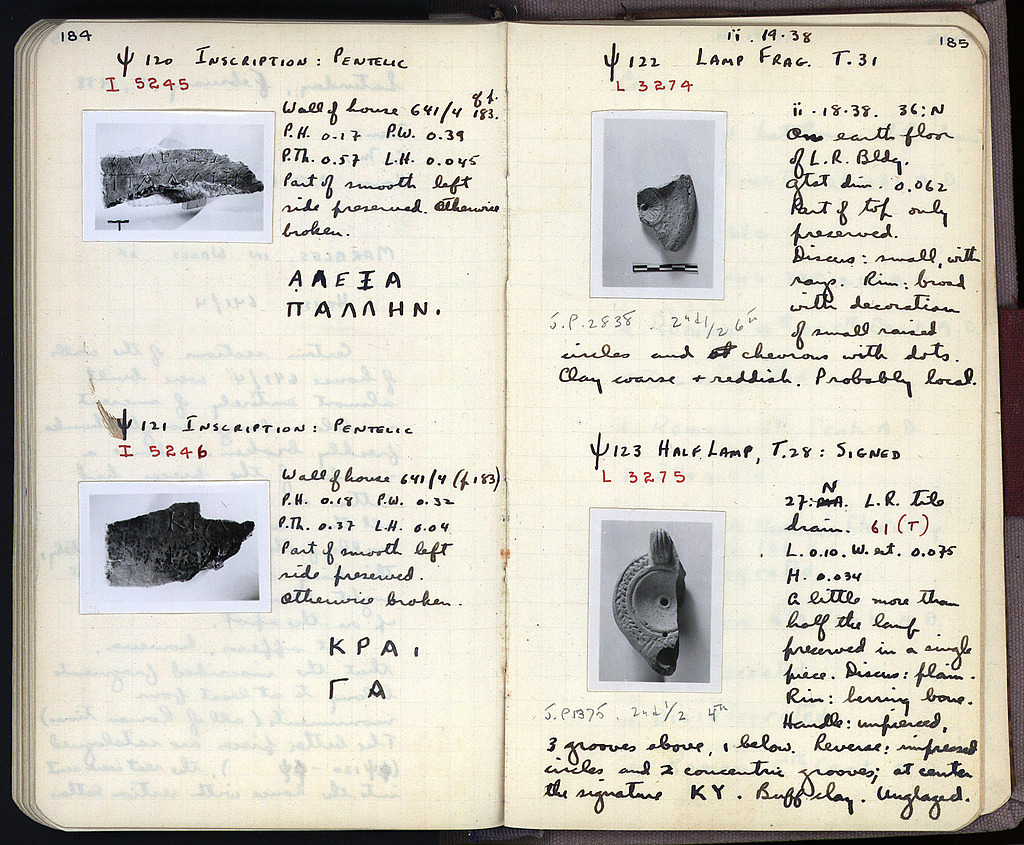 184
ψ 120 INSCRIPTION: PENTELIC
I 5245
Wall of house 641/4 cf. p. 183.
P.H. 0.17 P.W. 0.39
P.Th. 0.57 L.H. 0.045
Part of smooth left
side preserved. Otherwise
broken.
ΑΛΕΞΑ
ΠΑΛΛΗΝ.
ψ 121 INSCRIPTION: PENTELIC
I 5246
Wall of house 641/4 (p. 183)
P.H. 0.18 P.W. 0.32
P.Th. 0.37 L.H. 0.04
Part of smooth left
side preserved.
Otherwise broken.
ΚΡΑΙ
ΓΑ
185
ii.19.38
ψ 122 LAMP FRAG. T.31
L 3274
ii.18.38. 36:N
On earth floor
of L.R. Bldg.
gtst dim. 0.062
Part of top only
preserved.
Discus: small, with
rays. Rim: broad
with decoration
of small raised
circles and chevrons with dots.
Clay coarse + reddish. Probably local.
J.P. 2838. 2nd 1/2 6th
ψ 123 HALF LAMP, T.28: SIGNED
L 3275
27:N L.R. tile
drain. 61 (T)
L. 0.10. W. est. 0.075
H. 0.034
A little more than
half the lamp
preserved in a single
piece. Discus: plain.
Rim: herring bone.
Handle: unpierced,
3 grooves above, 1 below. Reverse: impressed
circles and 2 concentric grooves; at center
the signature KY. Buff clay. Unglazed.
J.P. 1375. 2nd 1/2 4th